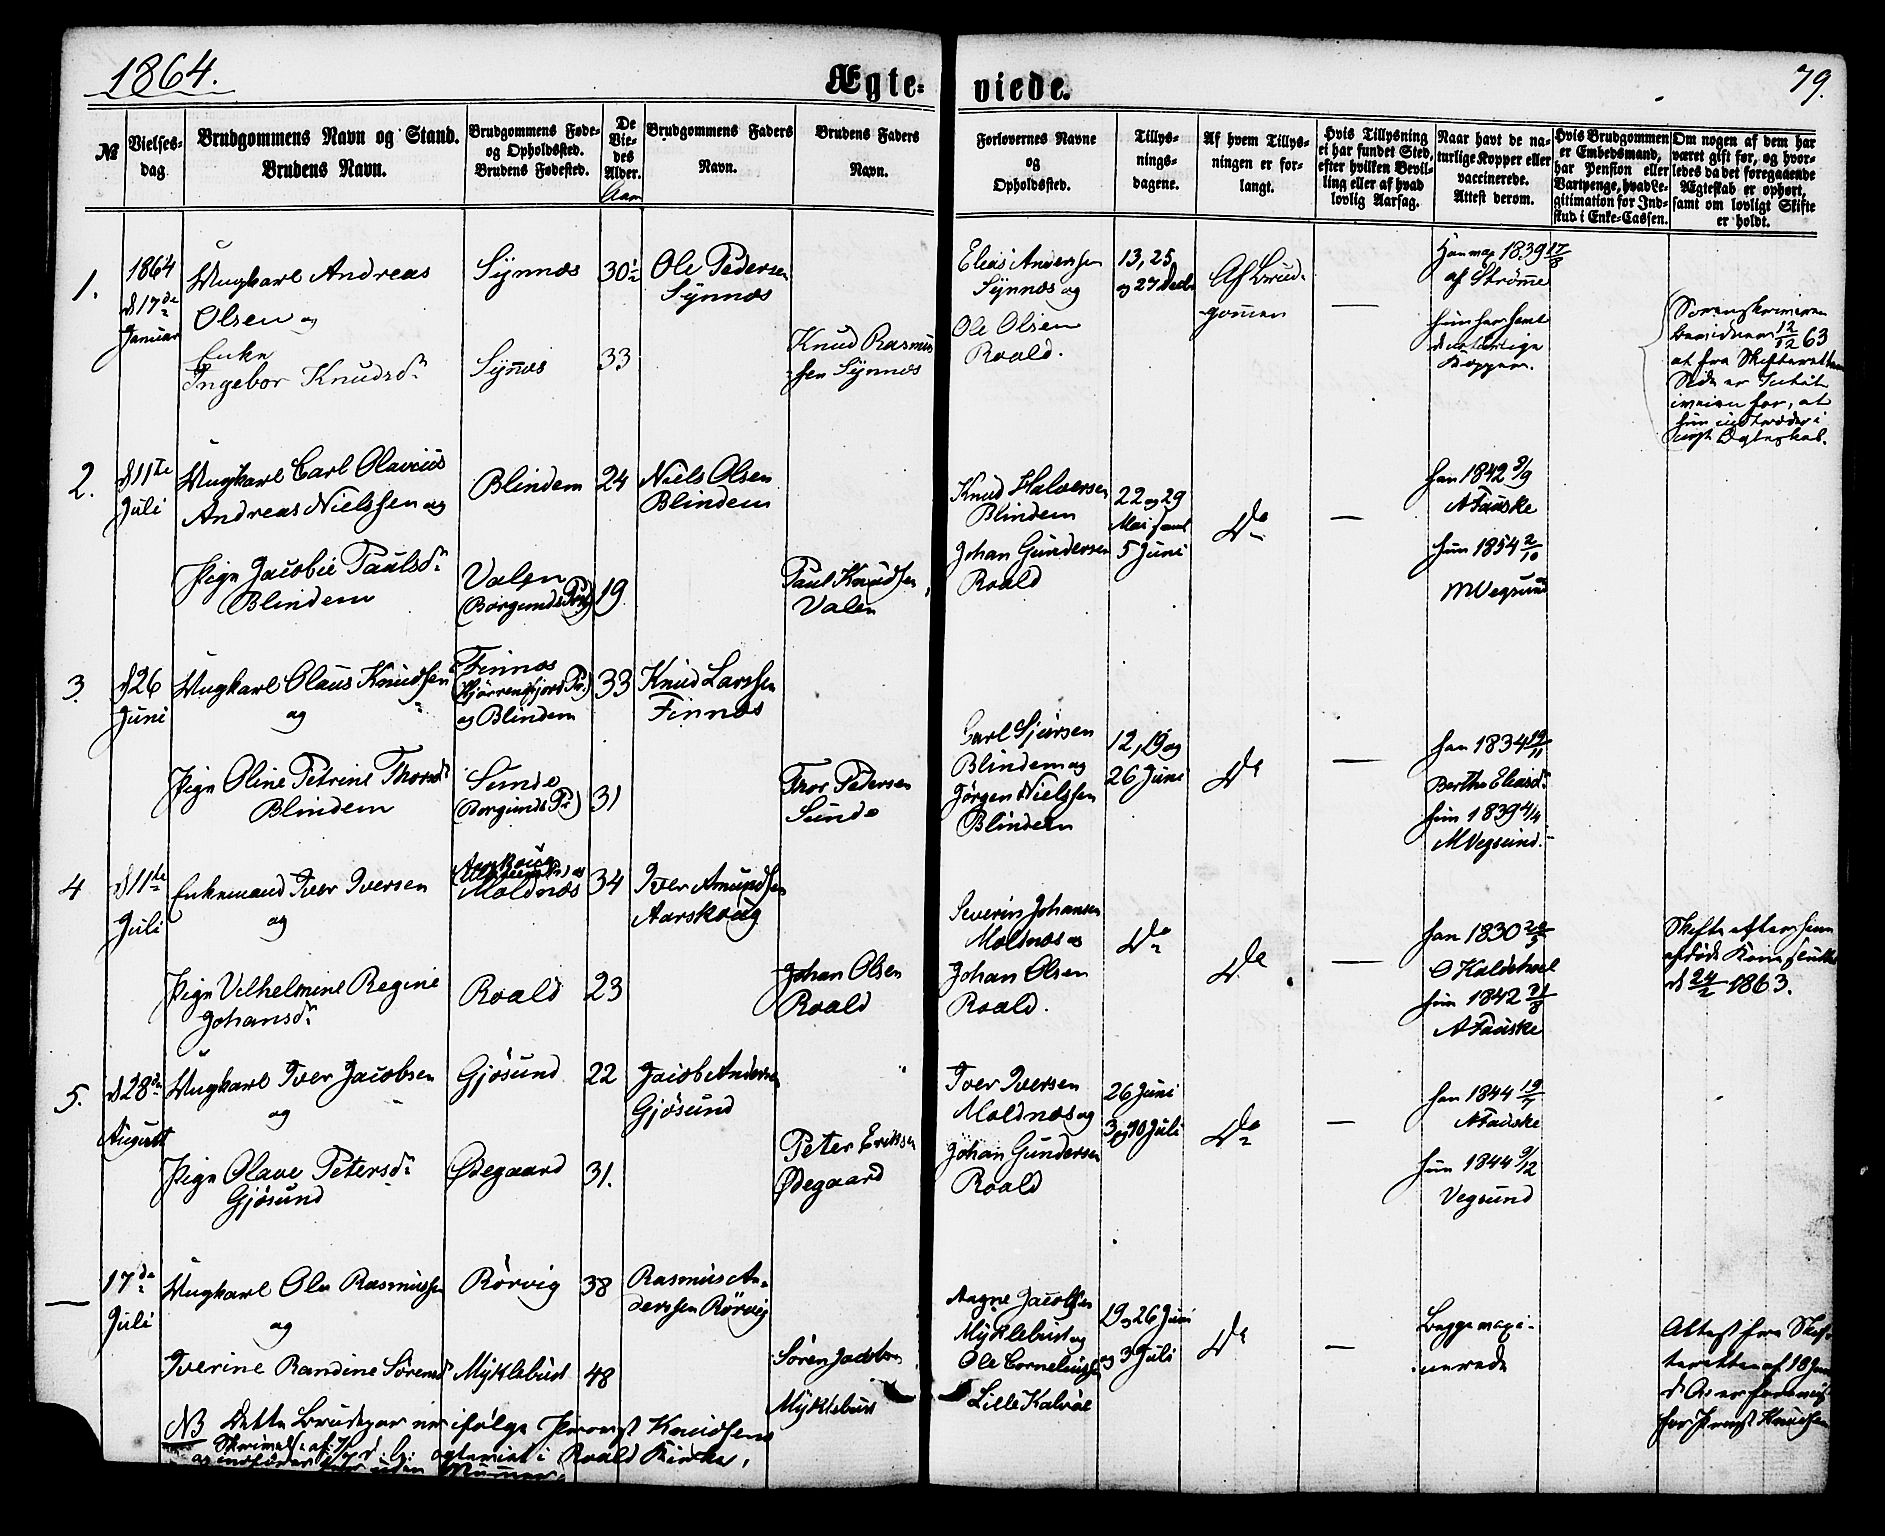 1864.
Ægte-
viede.
79.
№
Vielses-
dag
Brudgommens Navn og Stand.
Brudens Navn.
Brudgommens Føde-
og Opholdssted.
Brudens Fødested.
De
Vie-
des
Alder.
Aar
Brudgommens Faders
Navn.
Brudens Faders
Navn.
Forlovernes Navne
og
Opholdssted.
Tillys-
nings-
dagene.
Af hvem Tillys-
ningen er for-
langt.
Hvis Tillysning
ei har fundet Sted,
efter hvilken Bevil-
ling eller af hvad
lovlig Aarsag.
Naar havt de na-
turlige Kopper eller
vaccinerede.
Attest derom.
Hvis Brudgommen
er Embedsmand,
har Pension eller
Vartpenge, hvad Le-
gitimation for Ind-
skud i Enke-Cassen.
Om nogen af dem har
været gift før, og hvor-
ledes da det foregaaende
Ægteskab er ophørt,
samt om lovligt Skifte
er holdt.
1.
1864
d 17de
Januar
Ungkarl Andreas
Olsen og
Enke
Ingebor Knudsd:
Synnæs
Synæs
30½
33
Ole Pedersen
Synnæs
Knud Rasmus
sen Synnæs
Elias Anderssen
Synnæs og
Ole Olsen
Roald.
13, 25
og 27 Decbr
Af Brud-
gommen
—
1839 17/8
af Strømme
hun har havt
de naturlige
Kopper.
Sorenskriveren
bevidner 12/12 63
at fra Skifterettens
Side er Intet
iveien for, at
hun indtræder i
nyt Ægteskab.
2.
d 11te
Juli
Ungkarl Carl Olavius
Andreas Nielssen og
Pige Jacobie Paulsd:
Blindem
Blindem
Valen
(Borgunds Pr.)
24
19
Niels Olsen
Blindem
Paul Knudsen
Valen
Knud Halvorsen
Blindem
Johan Gundersen
Roald
22 og 29
Mai samt
5 Juni
Do
—
han 1842 8/9
A Fauske
hun 1854 2/10
M Vegsund
3.
d 26
Juni
Ungkarl Olaus Knudsen
og
Pige Oline Petrine Thorsd:
Blindem
Finnæs
(Hjørrengfjord Pr.)
og Blindem
Sunde
(Borgunds Pr)
33
31
Knud Larssen
Finnæs
Thor Pedersen
Sunde
Carl Sjursen
Blindem og
Jørgen Nielssen
Blindem
12, 19 og
26 Juni
Do
—
han 1834 19/11
Berthe Eliasd:
hun 1839 4/4
M Vegsund.
4
d 11te
Juli
Enkemand Iver Iversen
og
Pige Vilhelmine Regine
Johansd:
Moldnæs
Roald
34
23
Iver Amundsen
Aarskoug
Johan Olsen
Roald
Severin Johansen
Moldnæs og
Johan Olsen
Roald.
Do
Do
han 1830 20/5
O Kaldhoel
hun 1842 21/8
A Fauske
Skifte efter hans
afdøde Kone sluttet
d 24/2 1863.
5.
d 28de
August
Ungkarl Iver Jacobsen
og
Pige Olave Petersd:
Gjøsund
Gjøsund
Ødegaard
22
31.
Jacob Andersen
Gjøsund
Peter Eriksen
Ødegaard
Iver Iversen
Moldnæs og
Johan Gundersen
Roald
26 Juni
3 og 10 Juli
Do
—
han 1844 19/7
A Fauske
hun 1844 9/12
Vegsund
—
17de
Juli
Ungkarl Ole Rasmussen
og
Iverine Randine Sørensd
Rørvig
Myklebust
38
48
Rasmus An-
derssen Rørvig
Søren Jacobsen
Myklebust
Aagne Jacobsen
Myklebust og
Ole Corneliussen
Lille Kalvøe
19 og 26 Juni
og 3 Juli
Do
—
Begge vaxi-
nerede
Attest fra Skif-
teretten af 18 Juni
d. A. er fremvist
for Provst Knudsen
NB Dette Brudepar er ifølge Provst Knudsens
Skrivelse af 17/7 d. A. ægteviet i Roald Kirke,
og indføres her uden Nummer